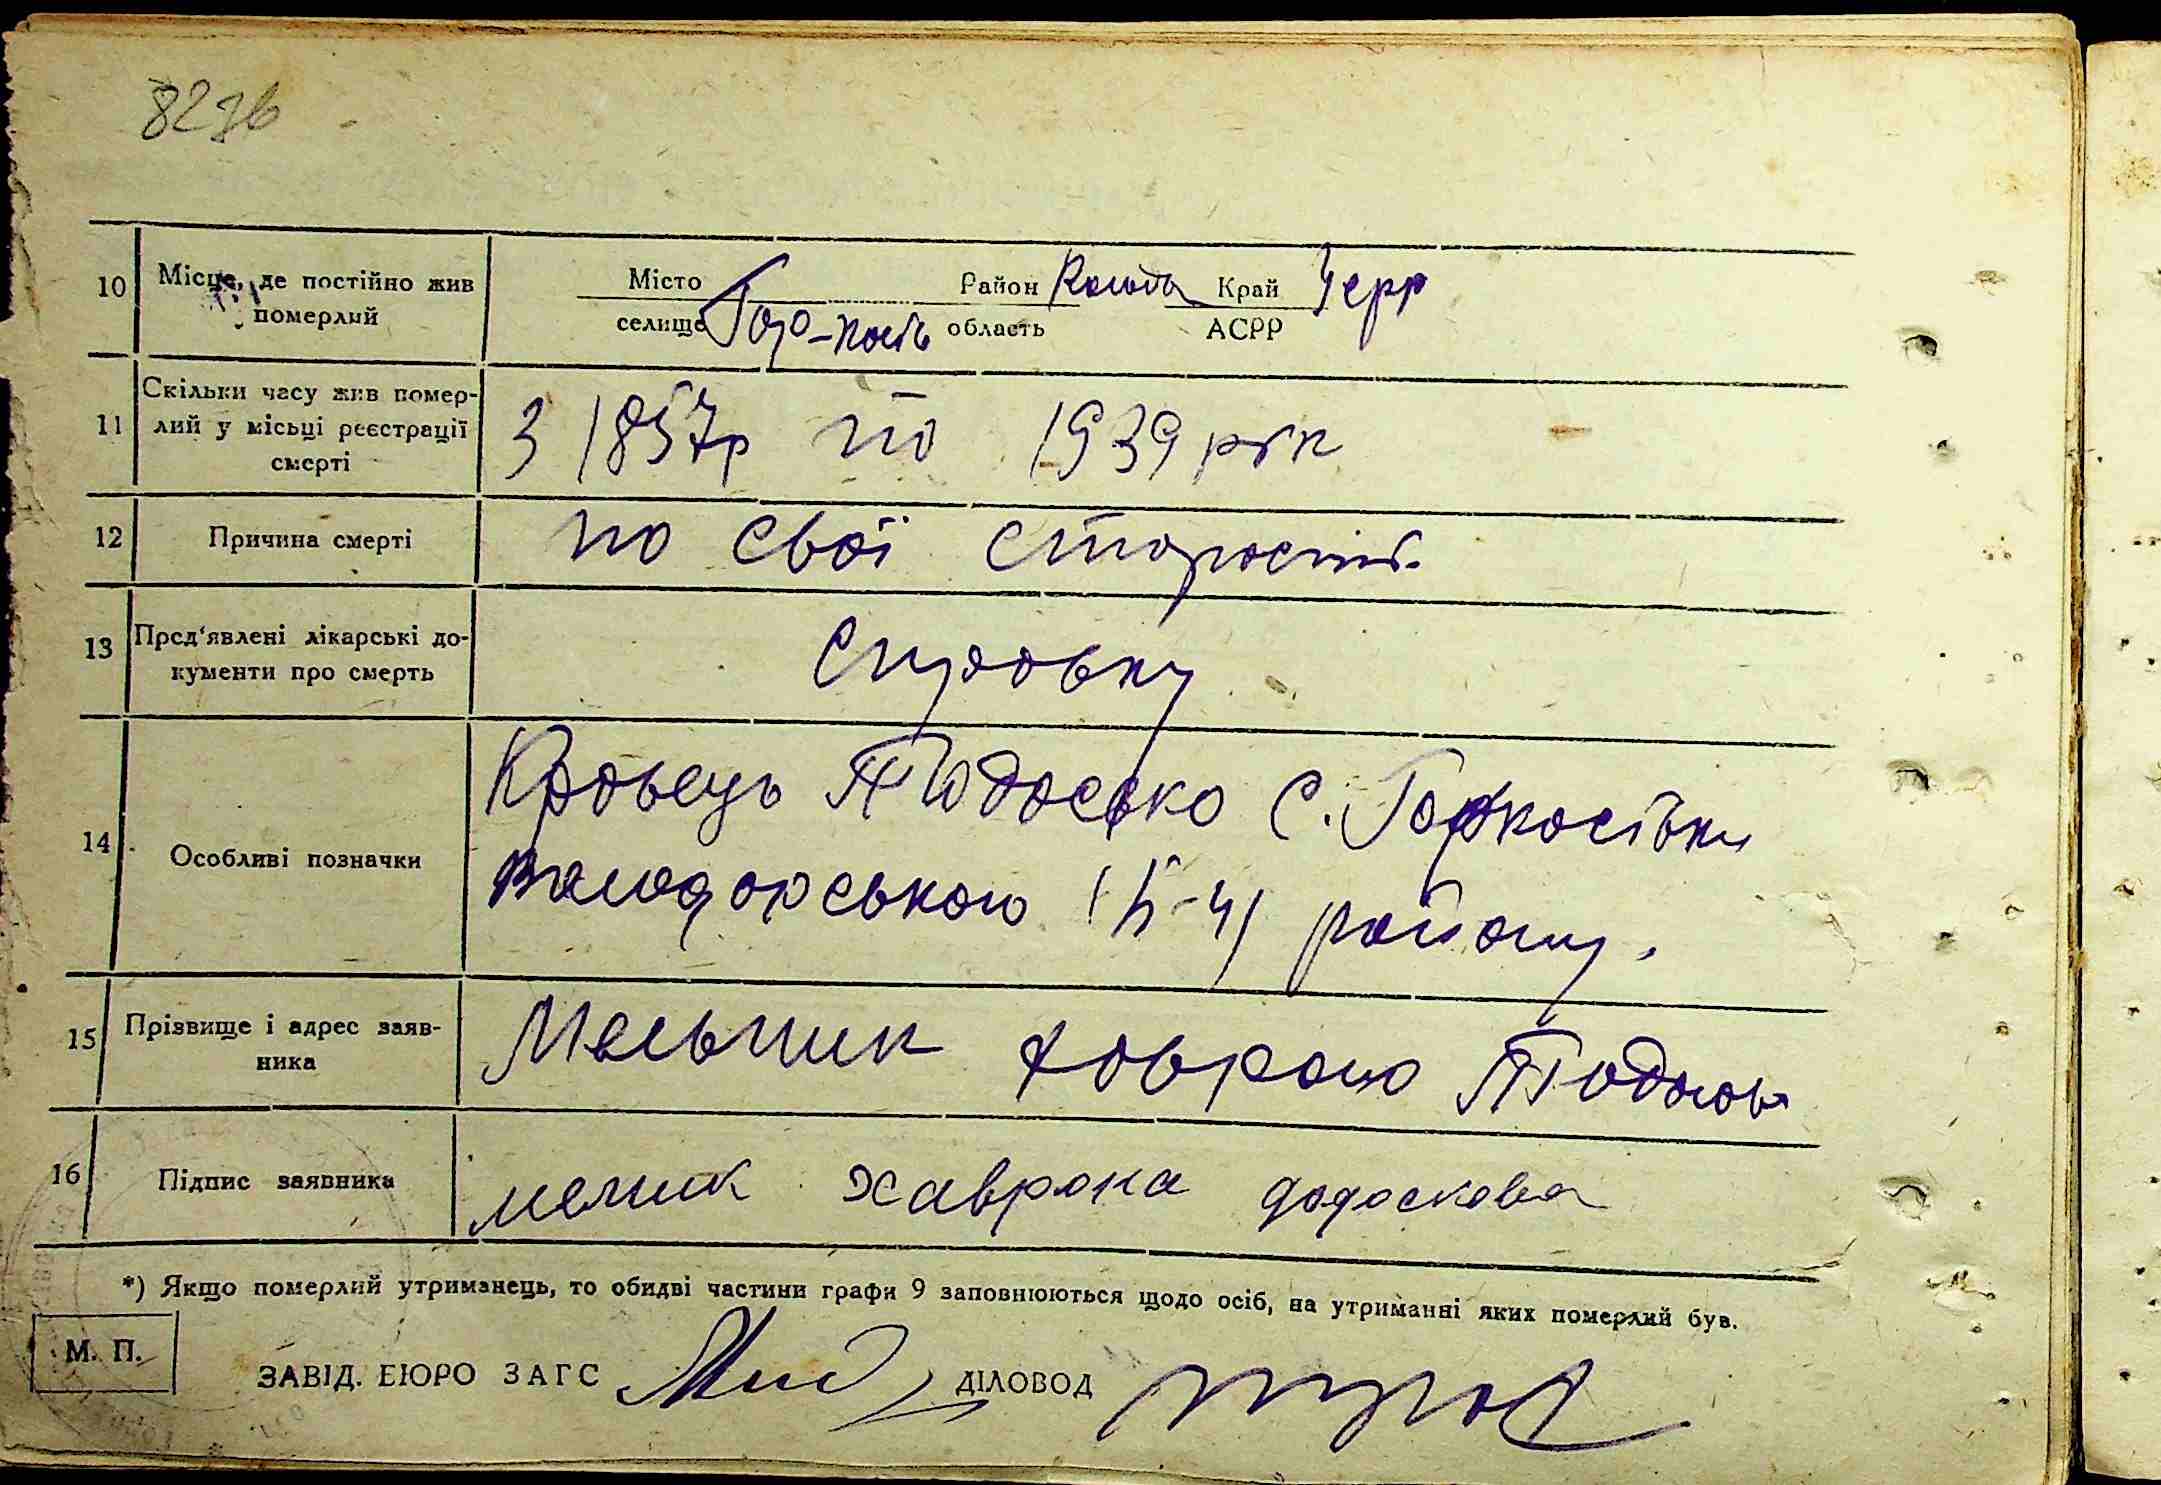 823в
10 Місце, де постійно жив померлий Місто селище Гор-пость Район область Край АСРР Усрр
11 Скільки часу жив помер-
лий у місьці реєстрації
смерті
З 1857р по 1939 рік
12 Причина смерті по свої старості.
13 Пред'явлені лікарські до-
кументи про смерть
Справку
14 Особливі позначки
Кравець Тодоська с.
Володарського район
15 Прізвище і адрес заяв-
ника
Мельник Хаврона
16 Підпис заявника мелник хаврона додоскова
*) Якщо померлий утриманець, то обидві частини графи 9 заповнюються щодо осіб, на утриманні яких померлий був.
М. П.
ЗАВІД. БЮРО ЗАГС ДІЛОВОД